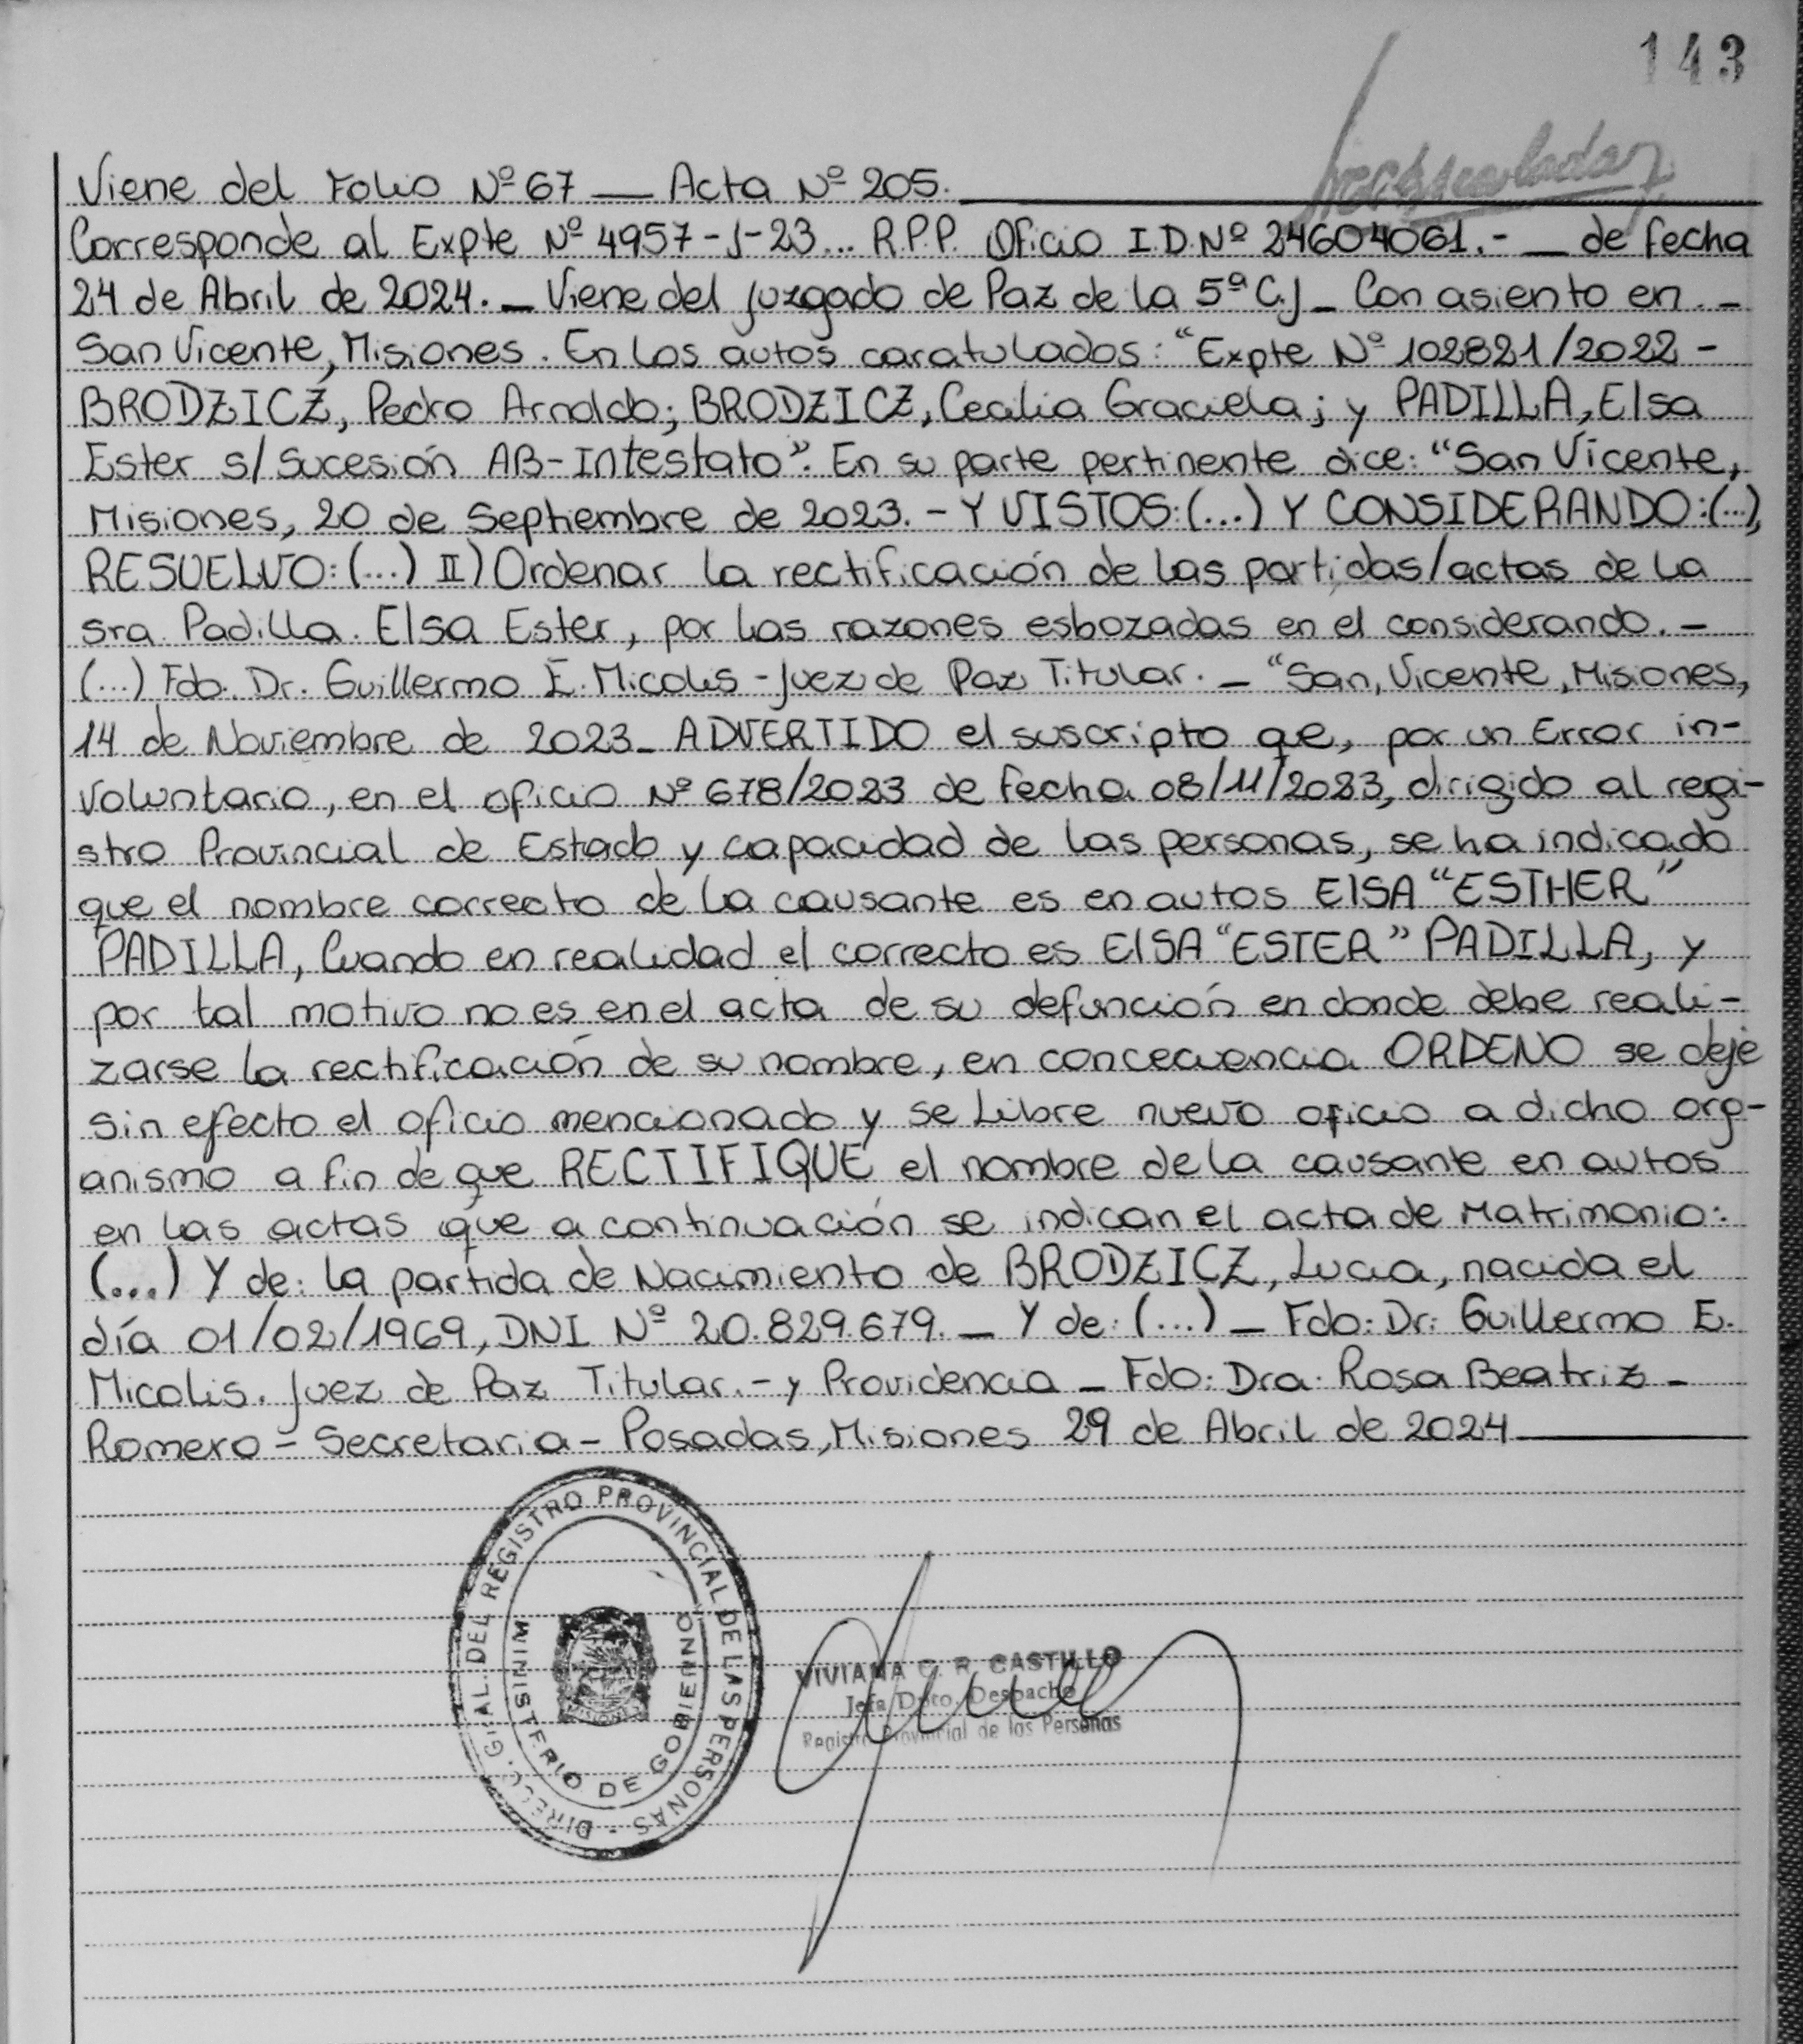 143
Viene del Folio Nº 67 — Acta Nº 205.
Corresponde al Expte Nº 4957-J-23... R.P.P. Oficio I.D.Nº 24604061.- — de fecha
24 de Abril de 2024. — Viene del Juzgado de Paz de la 5ª C.J — Con asiento en . -
San Vicente, Misiones. En los autos caratulados: "Expte Nº 102821/2022 -
BRODZICZ, Pedro Arnoldo; BRODZICZ, Cecilia Graciela; y PADILLA, Elsa
Ester s/ Sucesión AB-Intestato". En su parte pertinente dice: "San Vicente,
Misiones, 20 de Septiembre de 2023. - Y VISTOS:(...) Y CONSIDERANDO:(...),
RESUELVO:(...) II) Ordenar la rectificación de las partidas/actas de la
sra. Padilla. Elsa Ester, por las razones esbozadas en el considerando. -
(...) Fdo. Dr. Guillermo E. Micolis - Juez de Paz Titular. - "San, Vicente, Misiones,
14 de Noviembre de 2023- ADVERTIDO el suscripto que, por un Error in-
voluntario, en el oficio Nº 678/2023 de fecha 08/11/2023, dirigido al regi-
stro Provincial de Estado y capacidad de las personas, se ha indicado
que el nombre correcto de la causante es en autos ElSA "ESTHER"
PADILLA, Cuando en realidad el correcto es ElSA "ESTER" PADILLA, y
por tal motivo no es en el acta de su defunción en donde debe reali-
zarse la rectificación de su nombre, en concecuencia ORDENO se deje
sin efecto el oficio mencionado y se Libre nuevo oficio a dicho org-
anismo a fin de que RECTIFIQUE el nombre de la causante en autos
en las actas que a continuación se indican el acta de Matrimonio:
(...) Y de: la partida de Nacimiento de BRODZICZ, Lucia, nacida el
día 01/02/1969, DNI Nº 20.829.679. — Y de: (...) — Fdo: Dr: Guillermo E.
Micolis. Juez de Paz Titular. - y Providencia - Fdo: Dra. Rosa Beatriz -
Romero - Secretaria - Posadas, Misiones 29 de Abril de 2024
DIRECC. GRAL. DEL REGISTRO PROVINCIAL DE LAS PERSONAS -
MINISTERIO DE GOBIERNO
VIVIANA C. R. CASTILLO
Jefa Dpto. Despacho
Registro Provincial de las Personas